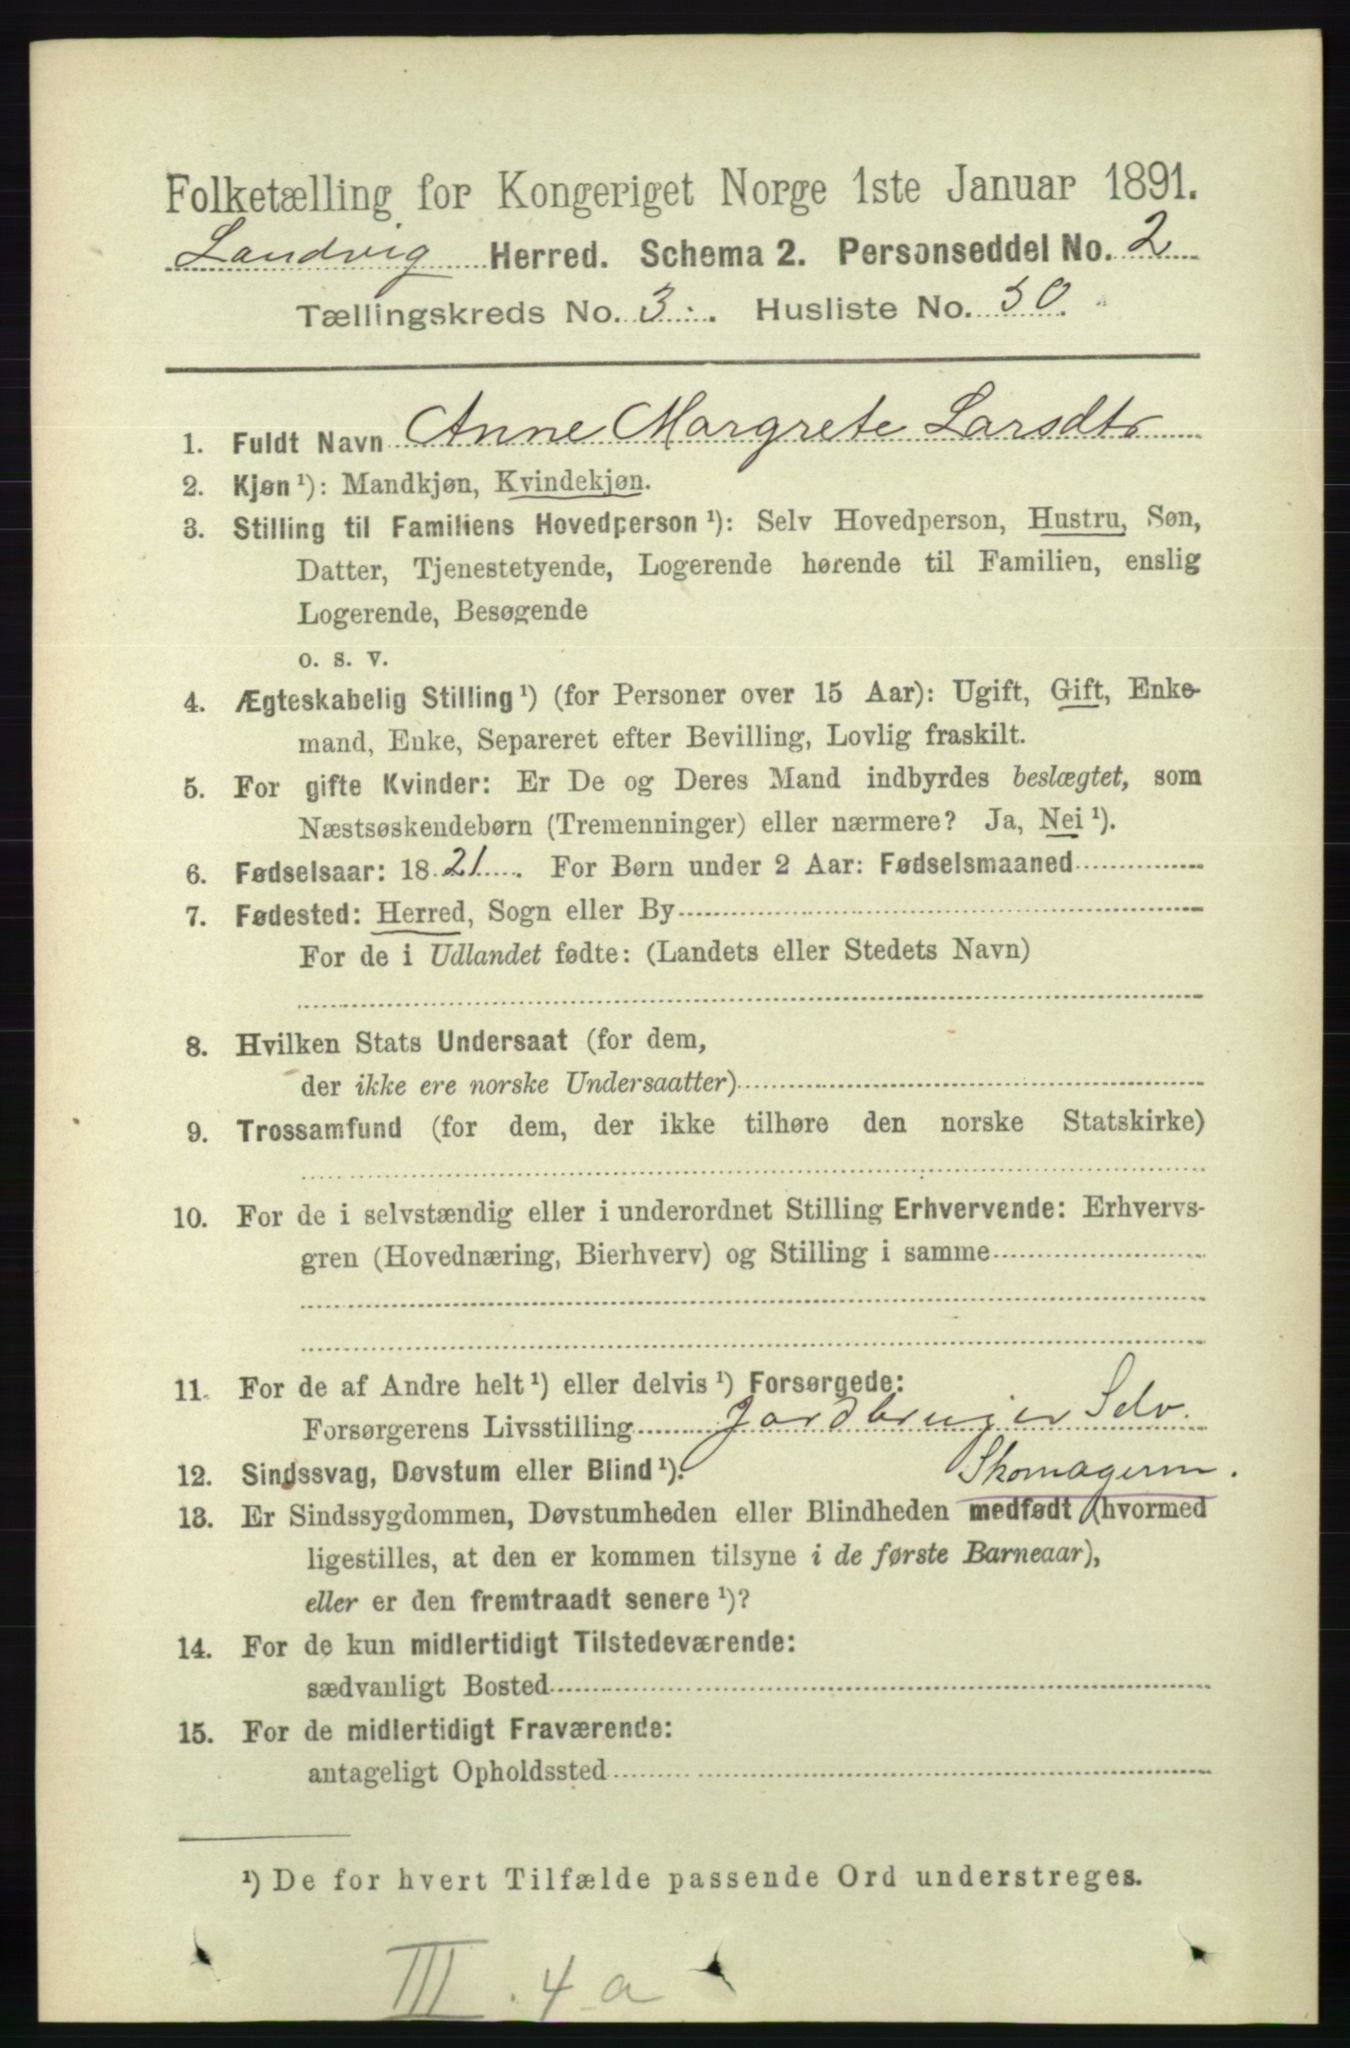 Folketælling for Kongeriget Norge 1ste Januar 1891.
Landvig Herred. Schema 2. Personseddel No. 2
Tællingskreds No. 3. Husliste No. 50.
1. Fuldt Navn Anne Margrete Larsdtr
2. Kjøn ¹): Mandkjøn, Kvindekjøn.
3. Stilling til Familiens Hovedperson ¹): Selv Hovedperson, Hustru, Søn,
Datter, Tjenestetyende, Logerende hørende til Familien, enslig
Logerende, Besøgende
o. s. v.
4. Ægteskabelig Stilling ¹) (for Personer over 15 Aar): Ugift, Gift, Enke-
mand, Enke, Separeret efter Bevilling, Lovlig fraskilt.
5. For gifte Kvinder: Er De og Deres Mand indbyrdes beslægtet, som
Næstsøskendebørn (Tremenninger) eller nærmere? Ja, Nei ¹).
6. Fødselsaar: 1821. For Børn under 2 Aar: Fødselsmaaned
7. Fødested: Herred, Sogn eller By
For de i Udlandet fødte: (Landets eller Stedets Navn)
8. Hvilken Stats Undersaat (for dem,
der ikke ere norske Undersaatter)
9. Trossamfund (for dem, der ikke tilhøre den norske Statskirke)
10. For de i selvstændig eller i underordnet Stilling Erhvervende: Erhvervs-
gren (Hovednæring, Bierhverv) og Stilling i samme
11. For de af Andre helt ¹) eller delvis ¹) Forsørgede:
Forsørgerens Livsstilling Jordbruger Selv.
12. Sindssvag, Døvstum eller Blind ¹). Skomagerm.
13. Er Sindssygdommen, Døvstumheden eller Blindheden medfødt (hvormed
ligestilles, at den er kommen tilsyne i de første Barneaar),
eller er den fremtraadt senere ¹)?
14. For de kun midlertidigt Tilstedeværende:
sædvanligt Bosted
15. For de midlertidigt Fraværende:
antageligt Opholdssted
¹) De for hvert Tilfælde passende Ord understreges.
III. 4 a